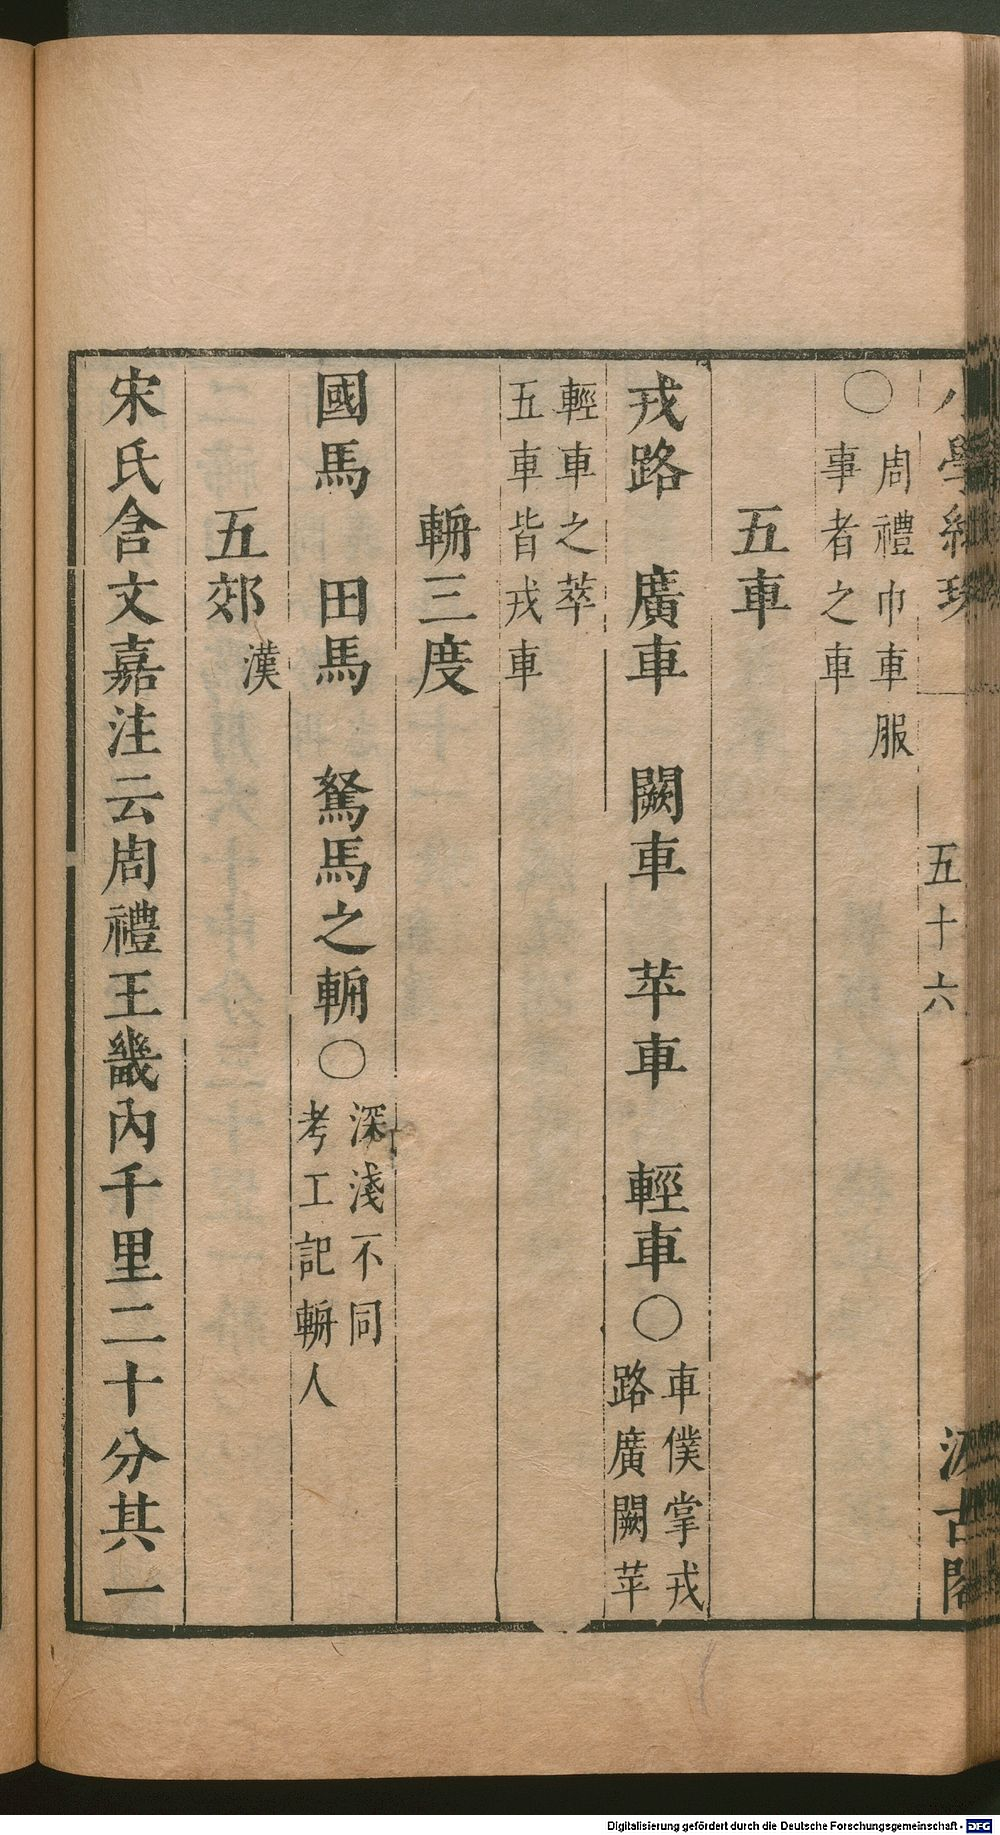 小學紺珠 五十六 汲古閣
○周禮巾車服
事者之車
五車
戎路 廣車 闕車 苹車 輕車○車僕掌戎
路廣闕苹
輕車之萃
五車皆戎車
輈三度
國馬 田馬 駑馬之輈○深淺不同
考工記輈人
五郊漢
宋氏含文嘉注云周禮王畿內千里二十分其一
Digitalisierung gefördert durch die Deutsche Forschungsgemeinschaft - DFG